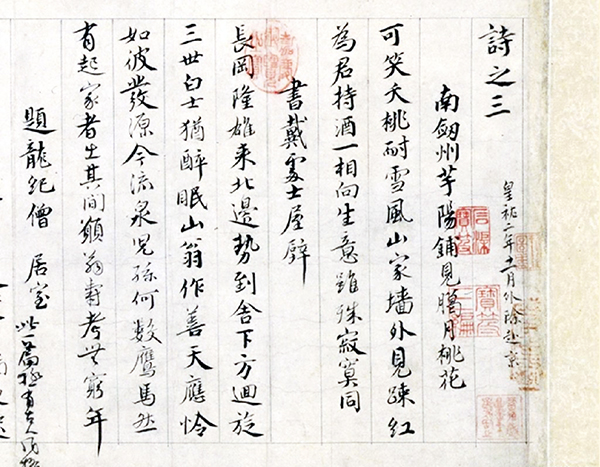 詩之三
皇祐二年十一月外除赴京
南劔州芋陽鋪見臘月桃花
可笑夭桃耐雪風山家墻外見踈紅
為君持酒一相向生意雖殊寂寞同
書戴處士屋壁
長岡隆雄來北邊勢到舍下方迴旋
三世白士猶醉眠山翁作善天應怜
如彼發源今流泉兒孫何數鷹馬然
有起家者出其間願翁壽考無窮年
題龍紀僧居室 此一篇極有古人風格